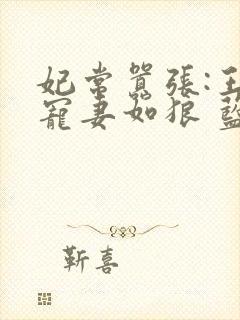 妃常嚣張:王
寵妻如狼 藍
靳喜